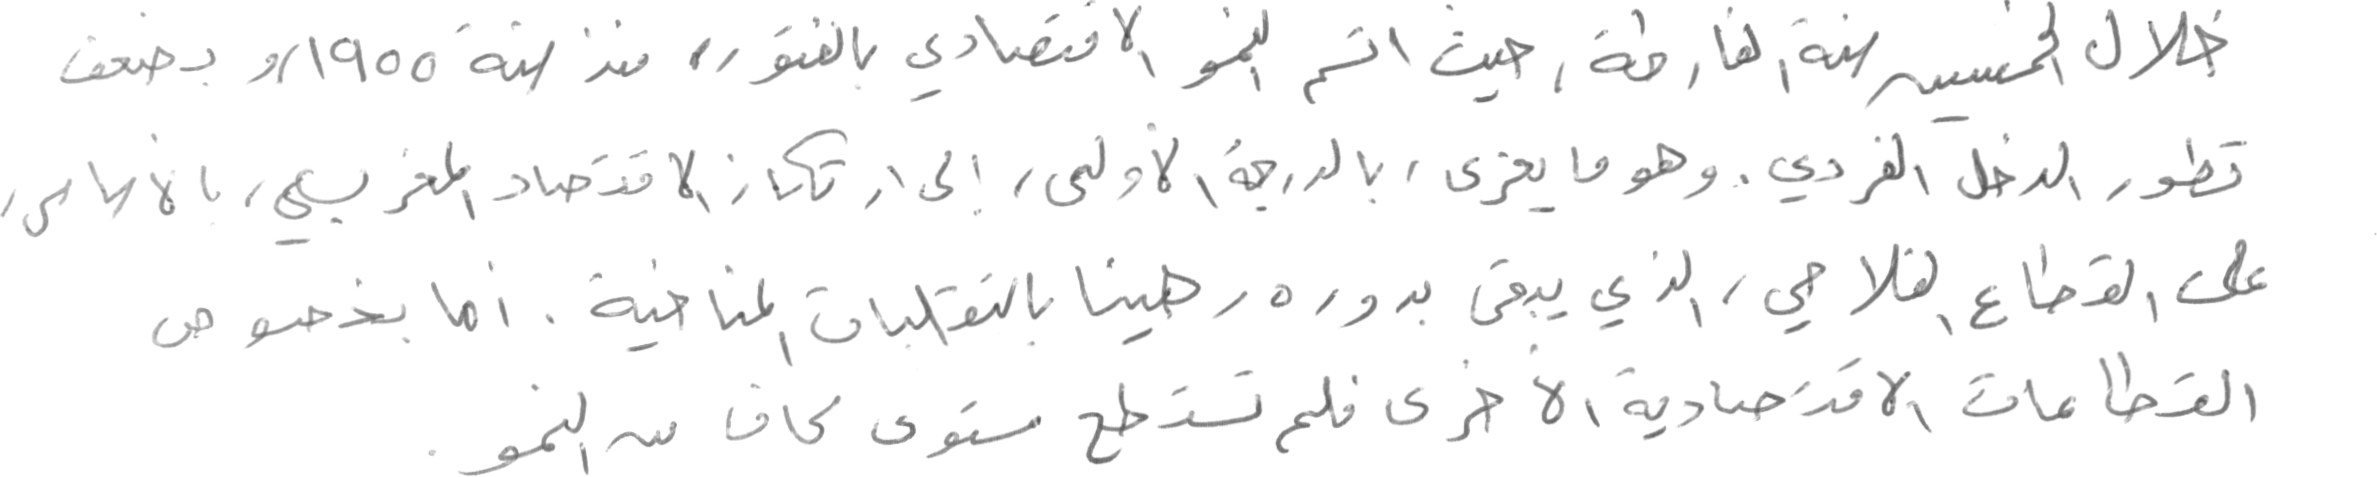 خلال الخمسين سنة الفارطة، حيث اتسم النمو الاقتصادي بالفتور، منذ سنة ١٩٥٥، وبضعف
تطور الدخل الفردي. وهو ما يعزى، بالدرجة الأولى، إلى ارتكاز الاقتصاد المغربي، بالأساس،
على القطاع الفلاحي، الذي يبقى بدوره رهينا بالتقلبات المناخية. أما بخصوص
القطاعات الاقتصادية الأخرى فلم تستطع مستوى كاف من النمو.